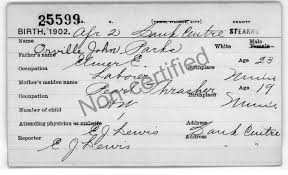 25599.
BIRTH, 1902. Apr 2 Sauk Centre STEARNS
Orville John Parks White Male Female
Father Elmer E. Age 23
Occupation Laborer Birthplace Minn
Mother's maiden name Pearl Thrasher Age 19
Occupation Birthplace Minn
Number of child
Attending physician or midwife E J Lewis Address Sauk Centre
Reporter E J Lewis
Non-certified